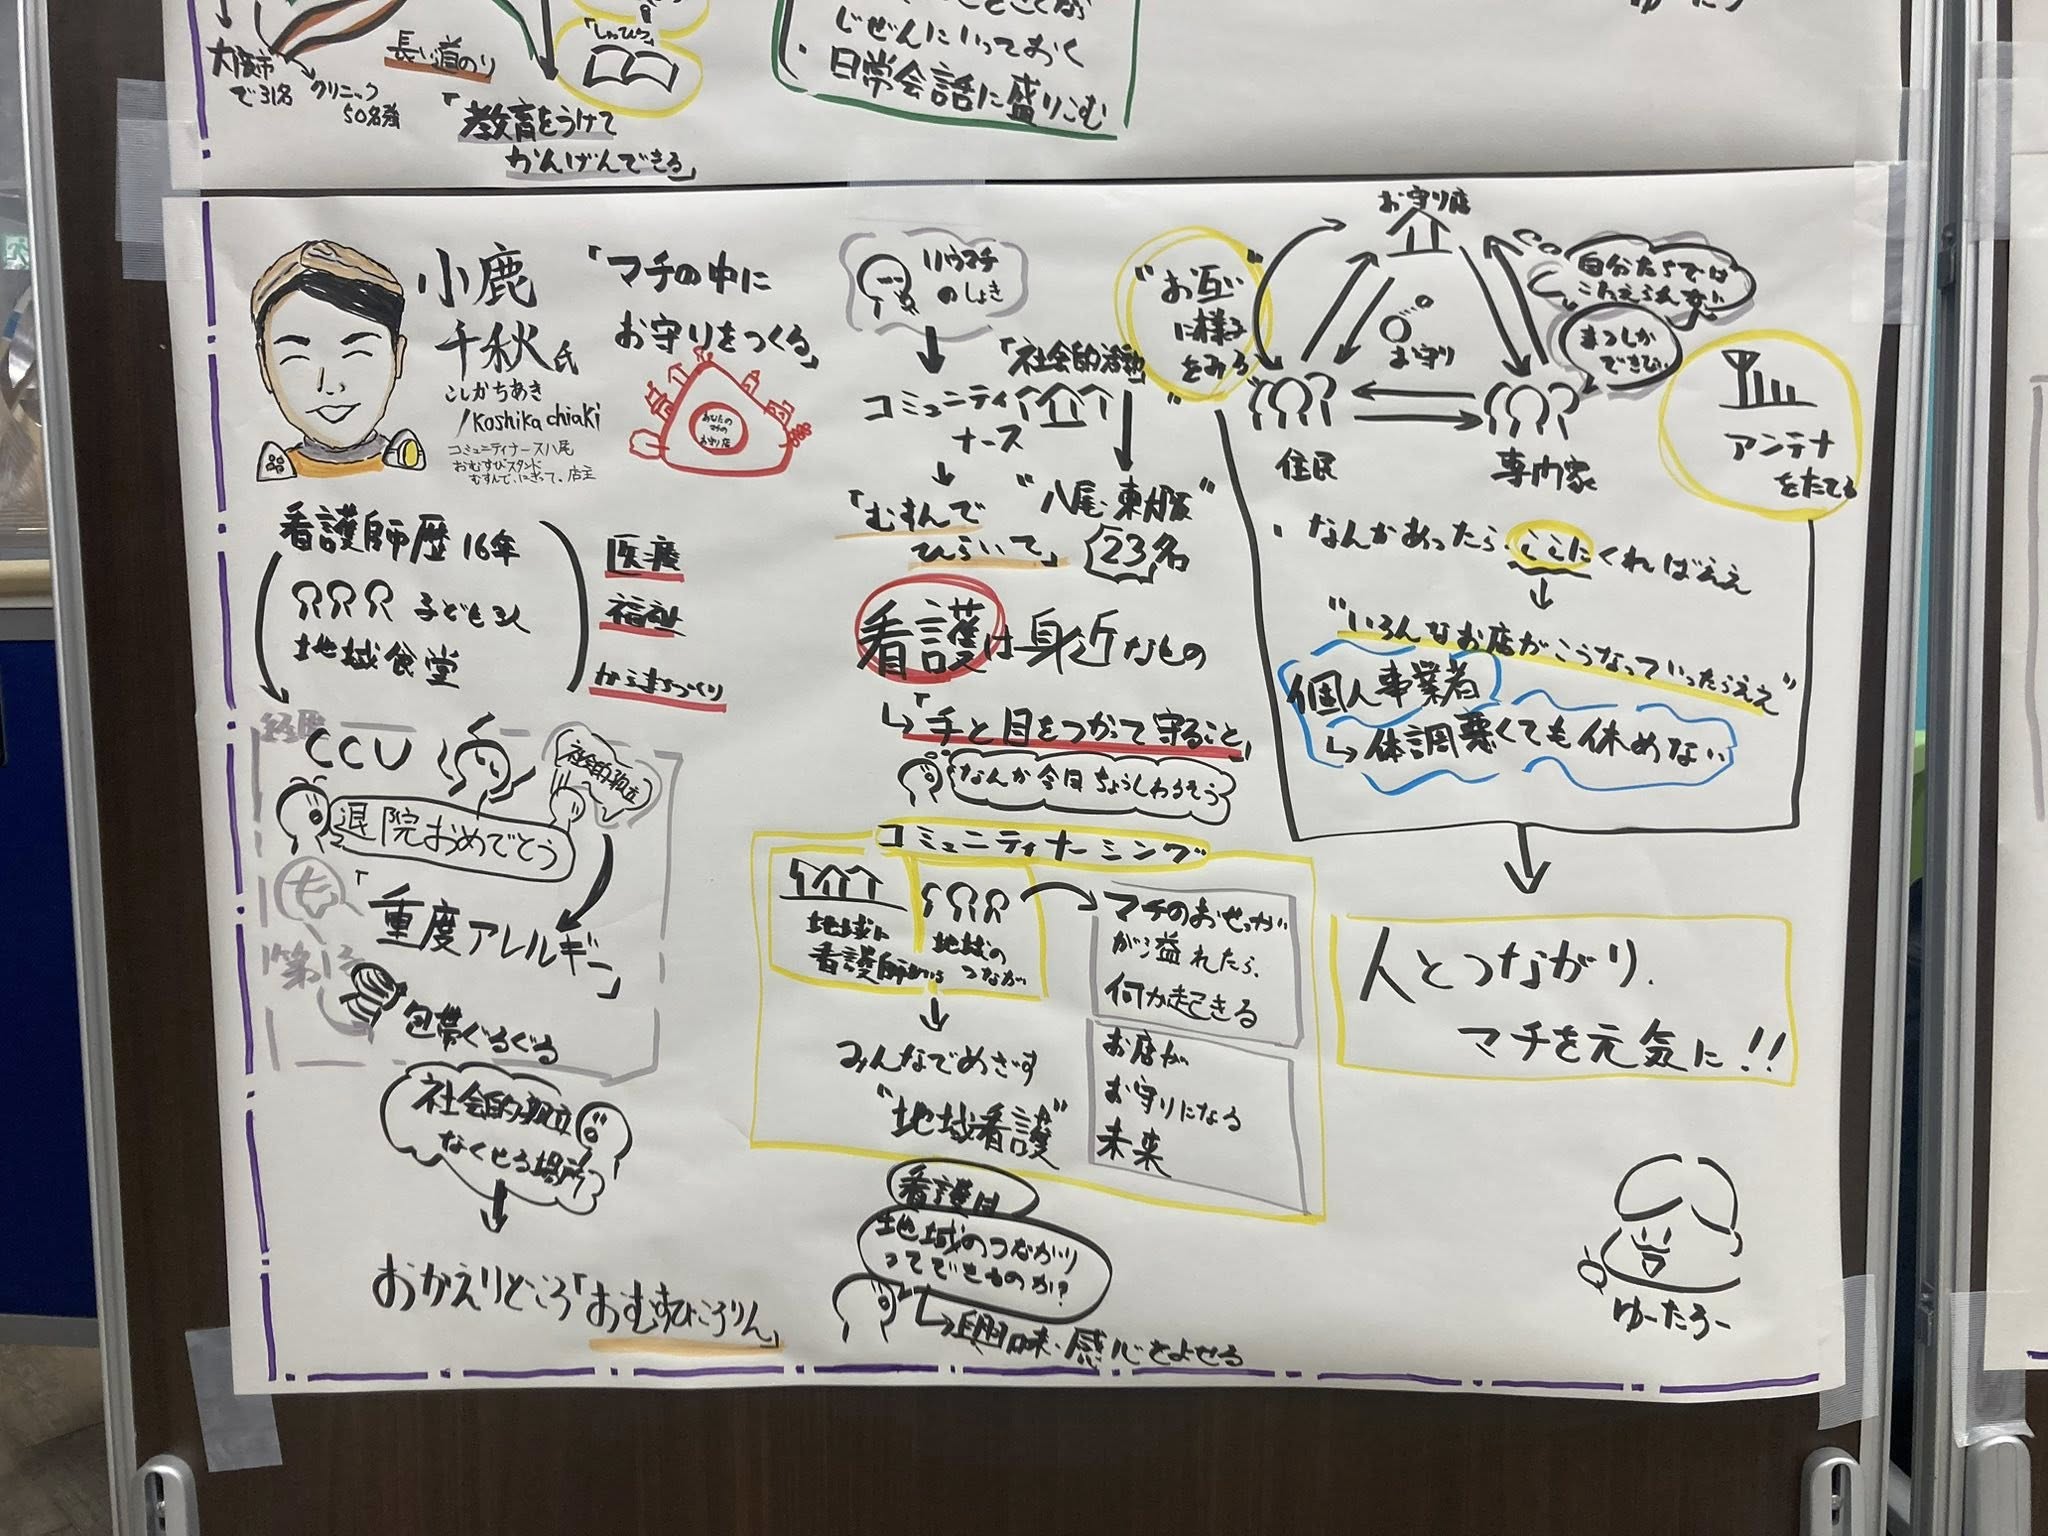 大阪市
で31名
クリニック
50名強
長い道のり
「教育をうけて
かんげんできる」
じぜんにいっておく
・日常会話に盛りこむ
小鹿
千秋氏
こしかちあき
/Koshika chiaki
コミュニティナース八尾
おむすびスタンド
むすんで、にぎって、店主
「マチの中に
お守りをつくる」
あなたの
マチの
お守り店
看護師歴16年
子ども3人
地域食堂
医療
福祉
からまちづくり
経歴
CCU
社会的孤立
退院おめでとう
「重度アレルギー」
包帯ぐるぐる
社会的孤立
なくせる場所
おかえりどころ「おむすびころりん」
リウマチ
のしょき
「社会的活動」
コミュニティ
ナース
「むすんで
ひらいて」
"八尾・東大阪"
23名
看護は身近なもの
「手と目をつかって守ること」
なんか今日ちょうしわるそう
コミュニティナーシング
地域に
看護師がいる
地域の
つながり
マチのおせっかい
が溢れたら、
何か起きる
お店が
お守りになる
未来
みんなでめざす
"地域看護"
看護は
地域のつながり
ってできるのか?
興味・感心をよせる
"お互い
に様子
をみる
お守り店
お守り
住民
専門家
自分たちでは
こたえられない
まつしか
できない
アンテナ
をたてる
・なんかあったら、ここにくればええ
"いろんなお店がこうなっていったらええ"
個人事業者
体調悪くても休めない
人とつながり、
マチを元気に!!
ゆーたろー